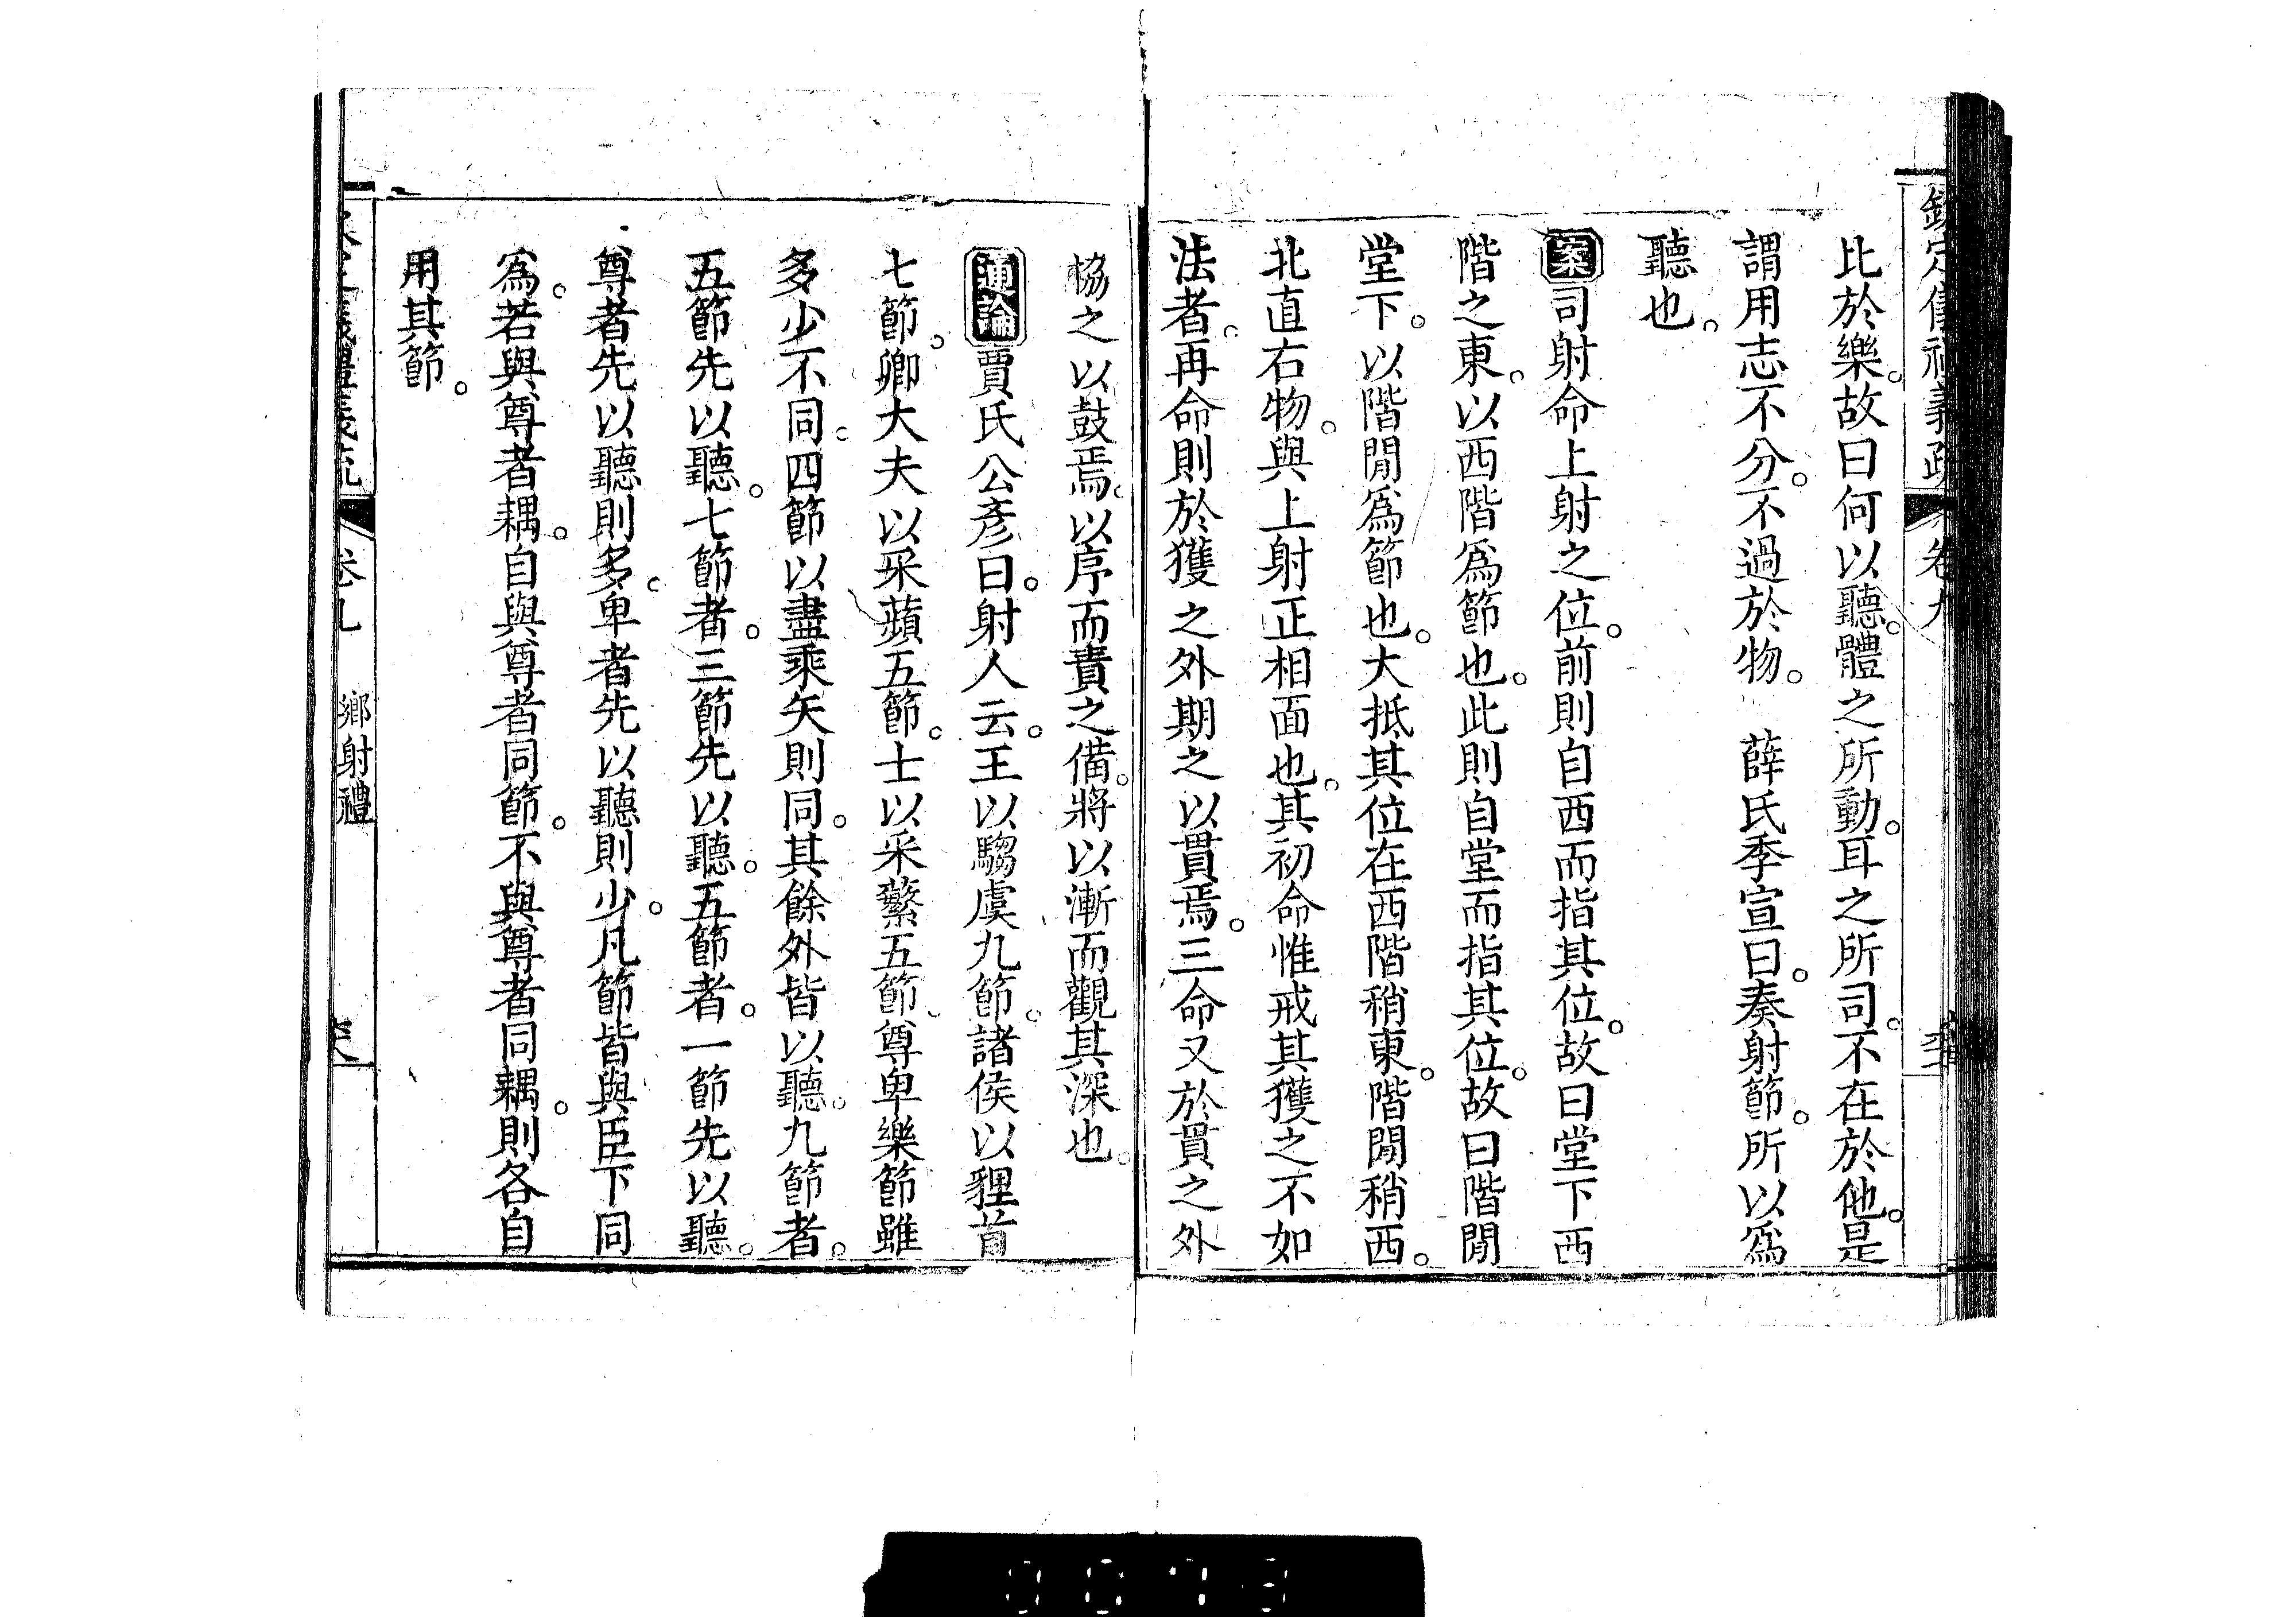 欽定儀禮義疏 卷九
比於樂。故曰何以聽。體之所動。耳之所司。不在於他。是
謂用志不分。不過於物。 薛氏季宣曰。奏射節。所以爲
聽也。
案司射命上射之位。前則自西而指其位。故曰堂下西
階之東。以西階爲節也。此則自堂而指其位。故曰階閒
堂下。以階閒爲節也。大抵其位在西階稍東。階閒稍西。
北直右物。與上射正相面也。其初命惟戒其獲之不如
法者。再命則於獲之外期之以貫焉。三命又於貫之外
協之以鼓焉。以序而責之備。將以漸而觀其深也。
通論賈氏公彥曰。射人云。王以騶虞九節。諸侯以貍首
七節。卿大夫以采蘋五節。士以采蘩五節。尊卑樂節雖
多少不同。四節以盡乘矢則同。其餘外皆以聽。九節者。
五節先以聽。七節者。三節先以聽。五節者。一節先以聽。
尊者先以聽則多。卑者先以聽則少。凡節皆與臣下同
爲。若與尊者耦。自與尊者同節。不與尊者同耦。則各自
用其節。
卷九 鄉射禮